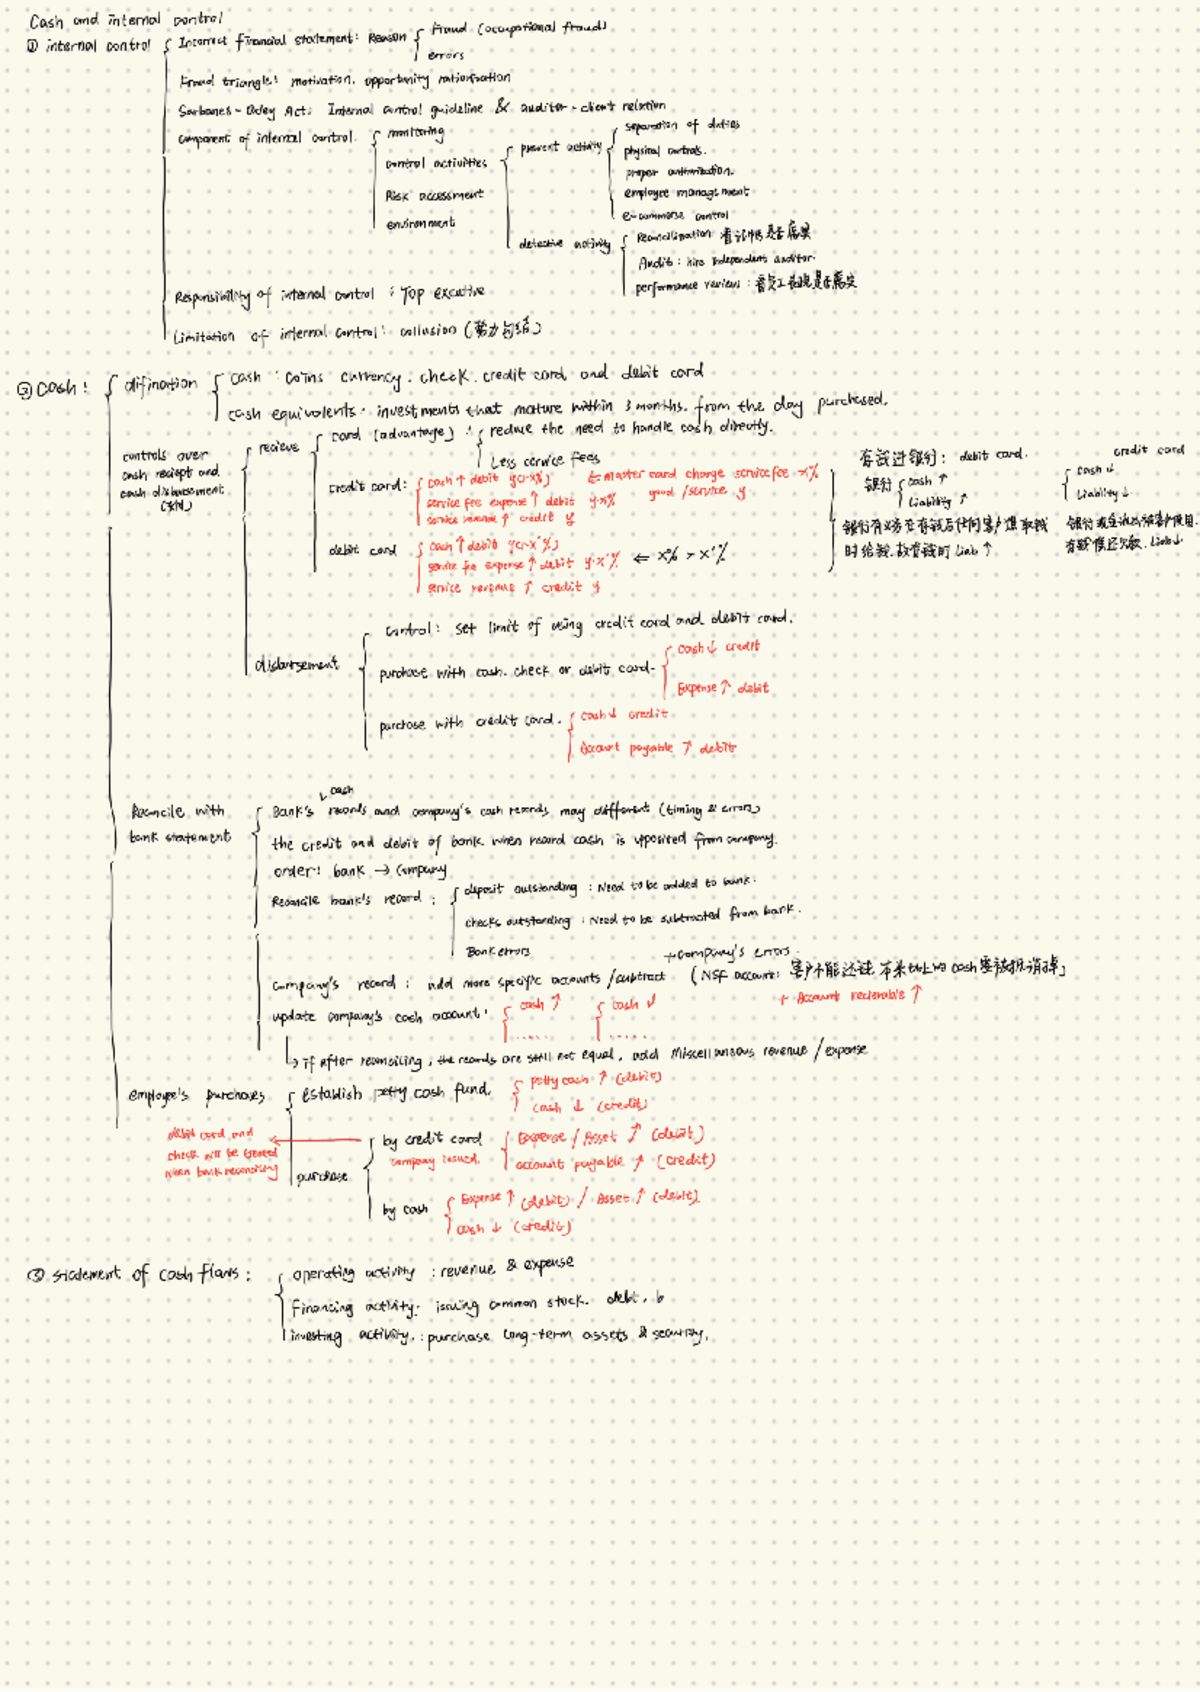 Cash and internal control
① internal control
Incorrect financial statement: Reason
Fraud (occupational fraud)
errors
Fraud triangle: motivation. opportunity rationization
Sarbanes-Oxley Act: Internal control guideline & auditor-client relation
component of internal control
monitoring
control activities
Risk accessment
environment
prevent activity
separation of duties
physical controls.
proper authorization.
employee managtment
e-commerse control
detective activity
Reconcilization 看记帐是否属实
Audit: hire independent auditor.
performance reviews: 看员工表现是否属实
Responsibility of internal control: Top excutive
Limitation of internal control: collusion (势力勾结)
② Cash:
difination
cash: coins currency. check. credit card and debit card
cash equivalents: investments that mature within 3 months. from the day purchased.
controls over
cash reciept and
cash disbursement
recieve
card (advantage):
reduce the need to handle cash directly.
Less service fees
credit card:
cash ↑ debit y(1-x%)
service fee expense ↑ debit y·x%
service revenue ↑ credit y
⇐ master card charge service fee x%
good/service y
debit card
cash ↑ debit y(1-x'%)
service fee expense ↑ debit y·x'%
service revenue ↑ credit y
⇐ x% > x'%
存钱进银行: debit card.
银行
cash ↑
liability ↑
银行有义务在存钱后任何客户想取钱
时给钱.故存钱时 Liab ↑
credit card
cash ↓
liability ↓
有钱偿还欠款. Liab ↓
disbursement
control: set limit of using credit card and debit card.
purchase with cash. check or debit card.
cash ↓ credit
Expense ↑ debit
purchase with credit card.
cash ↓ credit
Account payable ↑ debit
Reconcile with
bank statement
Bank's cash records and company's cash records may different (timing & errors)
the credit and debit of bank when record cash is opposited from company.
order: bank → company
Reconcile bank's record:
deposit outstanding: Need to be added to bank.
checks outstanding: Need to be subtracted from bank.
Bank errors
company's record: add more specific accounts/subtract
+company's errors.
(NSF account: 客户不能还钱
+ Account recievable ↑
update company's cash account:
cash ↑
......
cash ↓
......
→ if after reconciling, the records are still not equal, add Miscellanous revenue/expense
employee's purchases
Establish petty cash fund.
petty cash ↑ (debit)
cash ↓ (credit)
purchase
by credit card
company issued.
Expense / Asset ↑ (debit)
account payable ↑ (credit)
debit card and
check will be treated
when bank reconciling
by cash
Expense ↑ (debit) / Asset ↑ (debit)
cash ↓ (credit)
③ statement of cash flows:
operating activity: revenue & expense
Financing activity. issuing common stock. debt. b
investing activity.: purchase long-term assets & security.